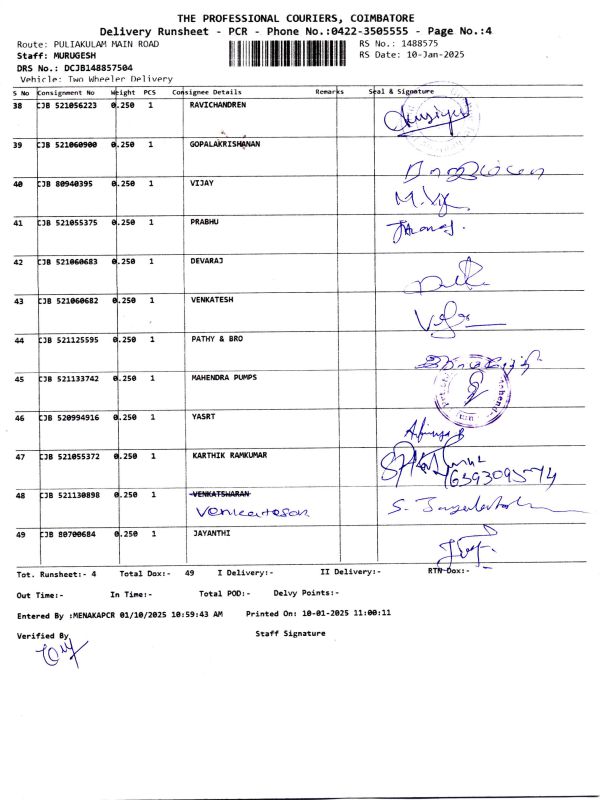 THE PROFESSIONAL COURIERS, COIMBATORE
Delivery Runsheet - PCR - Phone No.:0422-3505555 - Page No.:4
Route: PULIAKULAM MAIN ROAD RS No.: 1488575
Staff: MURUGESH RS Date: 10-Jan-2025
DRS No.: DCJB148857504
Vehicle: Two Wheeler Delivery
S No Consignment No Weight PCS Consignee Details Remarks Seal & Signature
38 CJB 521056223 0.250 1 RAVICHANDREN
39 CJB 521060900 0.250 1 GOPALAKRISHANAN
40 CJB 80940395 0.250 1 VIJAY M.Vij
41 CJB 521055375 0.250 1 PRABHU
42 CJB 521060683 0.250 1 DEVARAJ
43 CJB 521060682 0.250 1 VENKATESH
44 CJB 521125595 0.250 1 PATHY & BRO
45 CJB 521133742 0.250 1 MAHENDRA PUMPS
46 CJB 520994916 0.250 1 YASRT
47 CJB 521055372 0.250 1 KARTHIK RAMKUMAR
48 CJB 521130898 0.250 1 VENKATSHARAN
Venkatesan
49 CJB 80700684 0.250 1 JAYANTHI
Tot. Runsheet:- 4 Total Dox:- 49 I Delivery:- II Delivery:- RTN Dox:-
Out Time:- In Time:- Total POD:- Delvy Points:-
Entered By :MENAKAPCR 01/10/2025 10:59:43 AM Printed On: 10-01-2025 11:00:11
Verified By Staff Signature